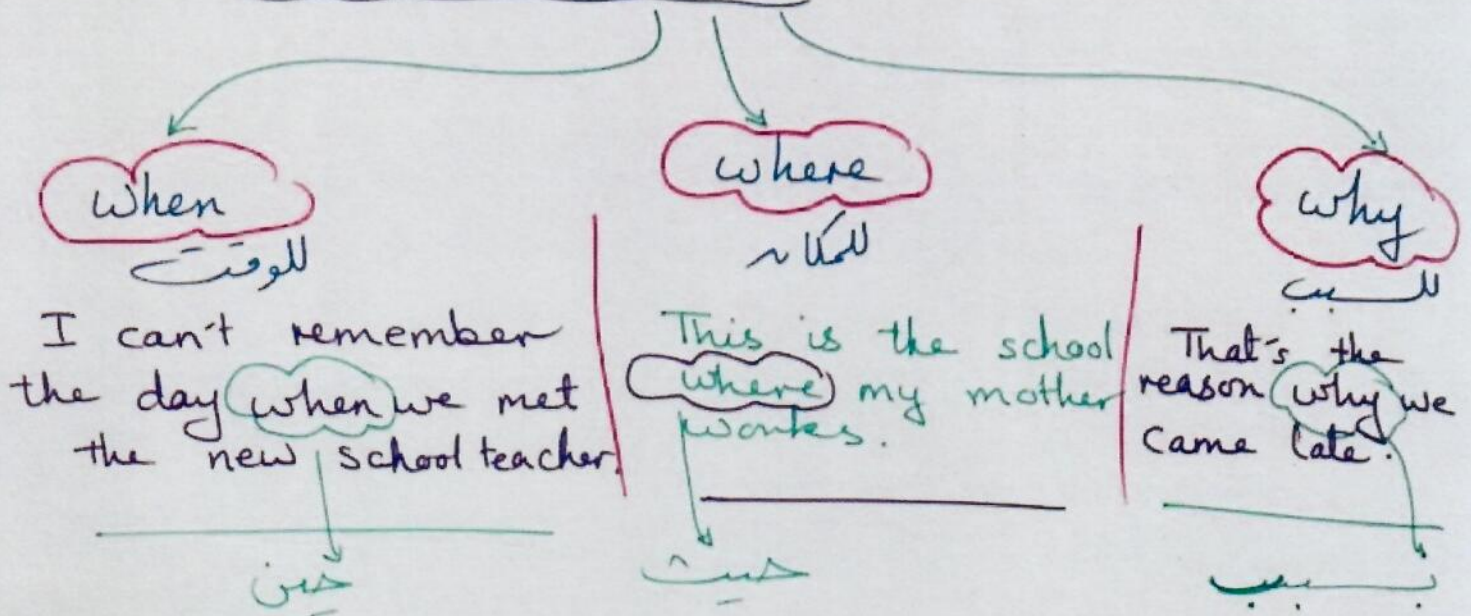 when
للوقت
I can't remember
the day when we met
the new school teacher.
حين
where
للمكان
This is the school
where my mother
works.
حيث
why
للسبب
That's the
reason why we
came late.
بسبب